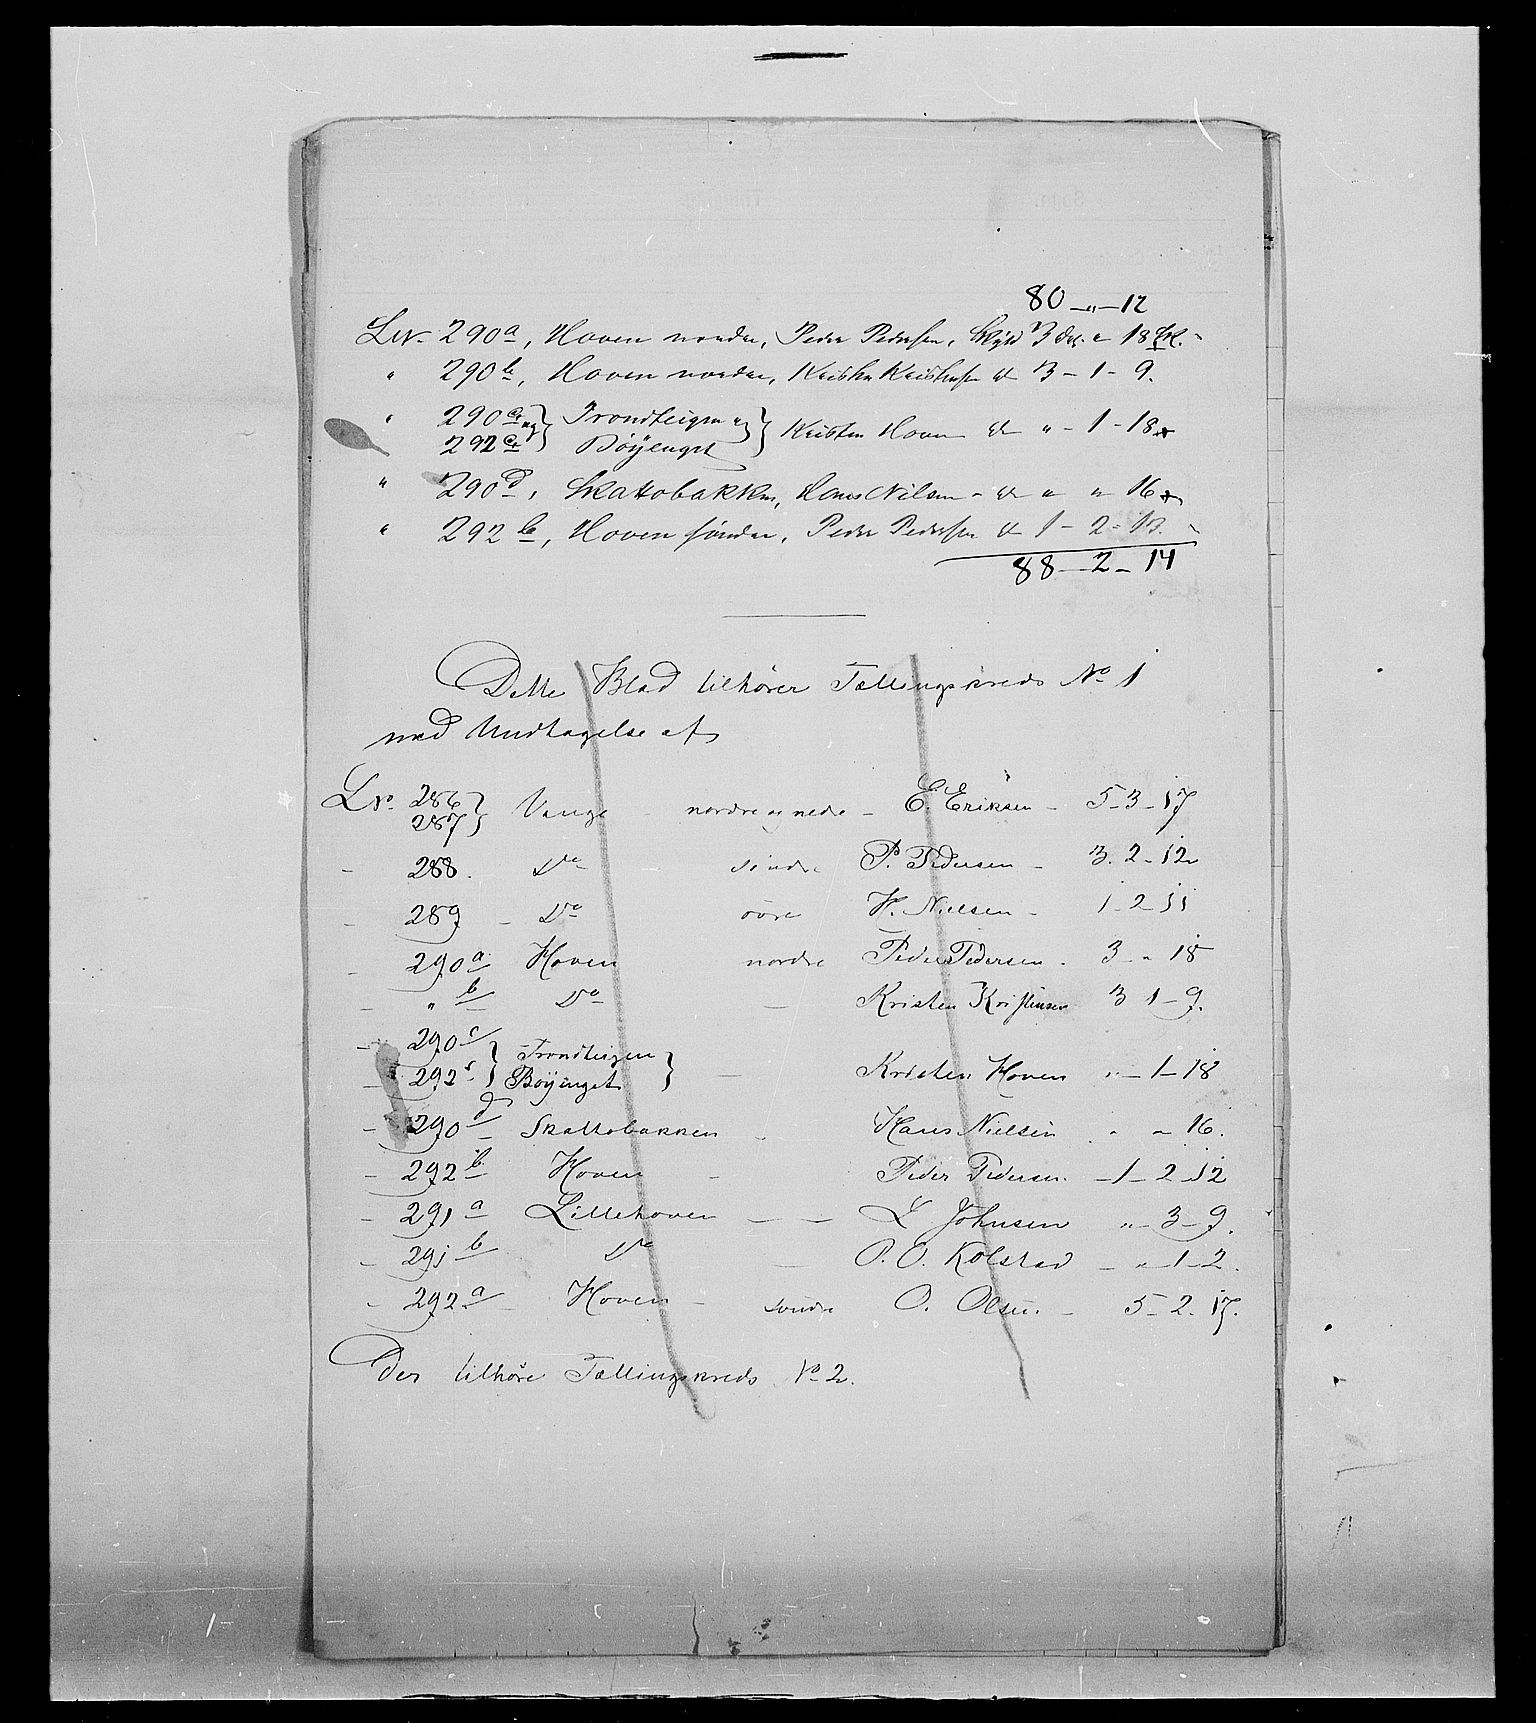 80 - " - 12
Lnr. 290a, Hoven nordre, Peder Pedersen, Skyld 3 Dlr. " 18 sk.
" 290b, Hoven nordre, Kristen Kristensen do 3 - 1 - 9.
" 290c og } Trondteigen og } Kristen Hoven do " - 1 - 18
292c } Böyenget
" 290d, Skattobakken, Hans Nilsen - do " " 16
" 292b, Hoven söndre, Peder Pedersen do 1 - 2 - 13.
88 - 2 - 14
Dette Blad tilhörer Tællingskreds No 1
med Undtagelse af
LNo. 286 } Vange - nordre og nedre - E. Eriksen - 5-3-17
287 }
- 288. Do söndre P. Pedersen - 3. 2 - 12
- 289 - Do övre H. Nielsen - 1 - 2 - 11
- 290a Hoven nordre Peder Pedersen - 3 - " 18
- " b Do - Kristen Kristensen 3 1 - 9.
- 290c } Trondteigen }
- 292c } Böyenget } - Kristen Hoven " - 1 - 18
- 290d - Skattobakken - Hans Nielsen " - 16.
- 292b Hoven - Peder Pedersen - 1 - 2 - 12
- 291a Lillehoven - - L Johnsen " - 3 - 9.
- 291b Do - P. O. Kolstad - " - 1 - 2.
- 292a - Hoven - söndre O. Olsen - 5 - 2 - 17.
der tilhöre Tællingskreds No 2.